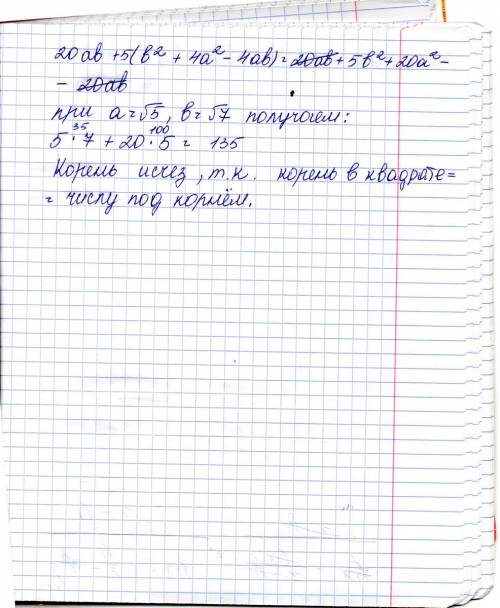 20ав +5(в² + 4а² - 4ав) = 20ав + 5в² + 20а² -
- 20ав
при а = √5, в = √7 получаем:
35 100
5 · 7 + 20 · 5 = 135
Корень исчез, т.к. корень в квадрате =
= числу под корнем.